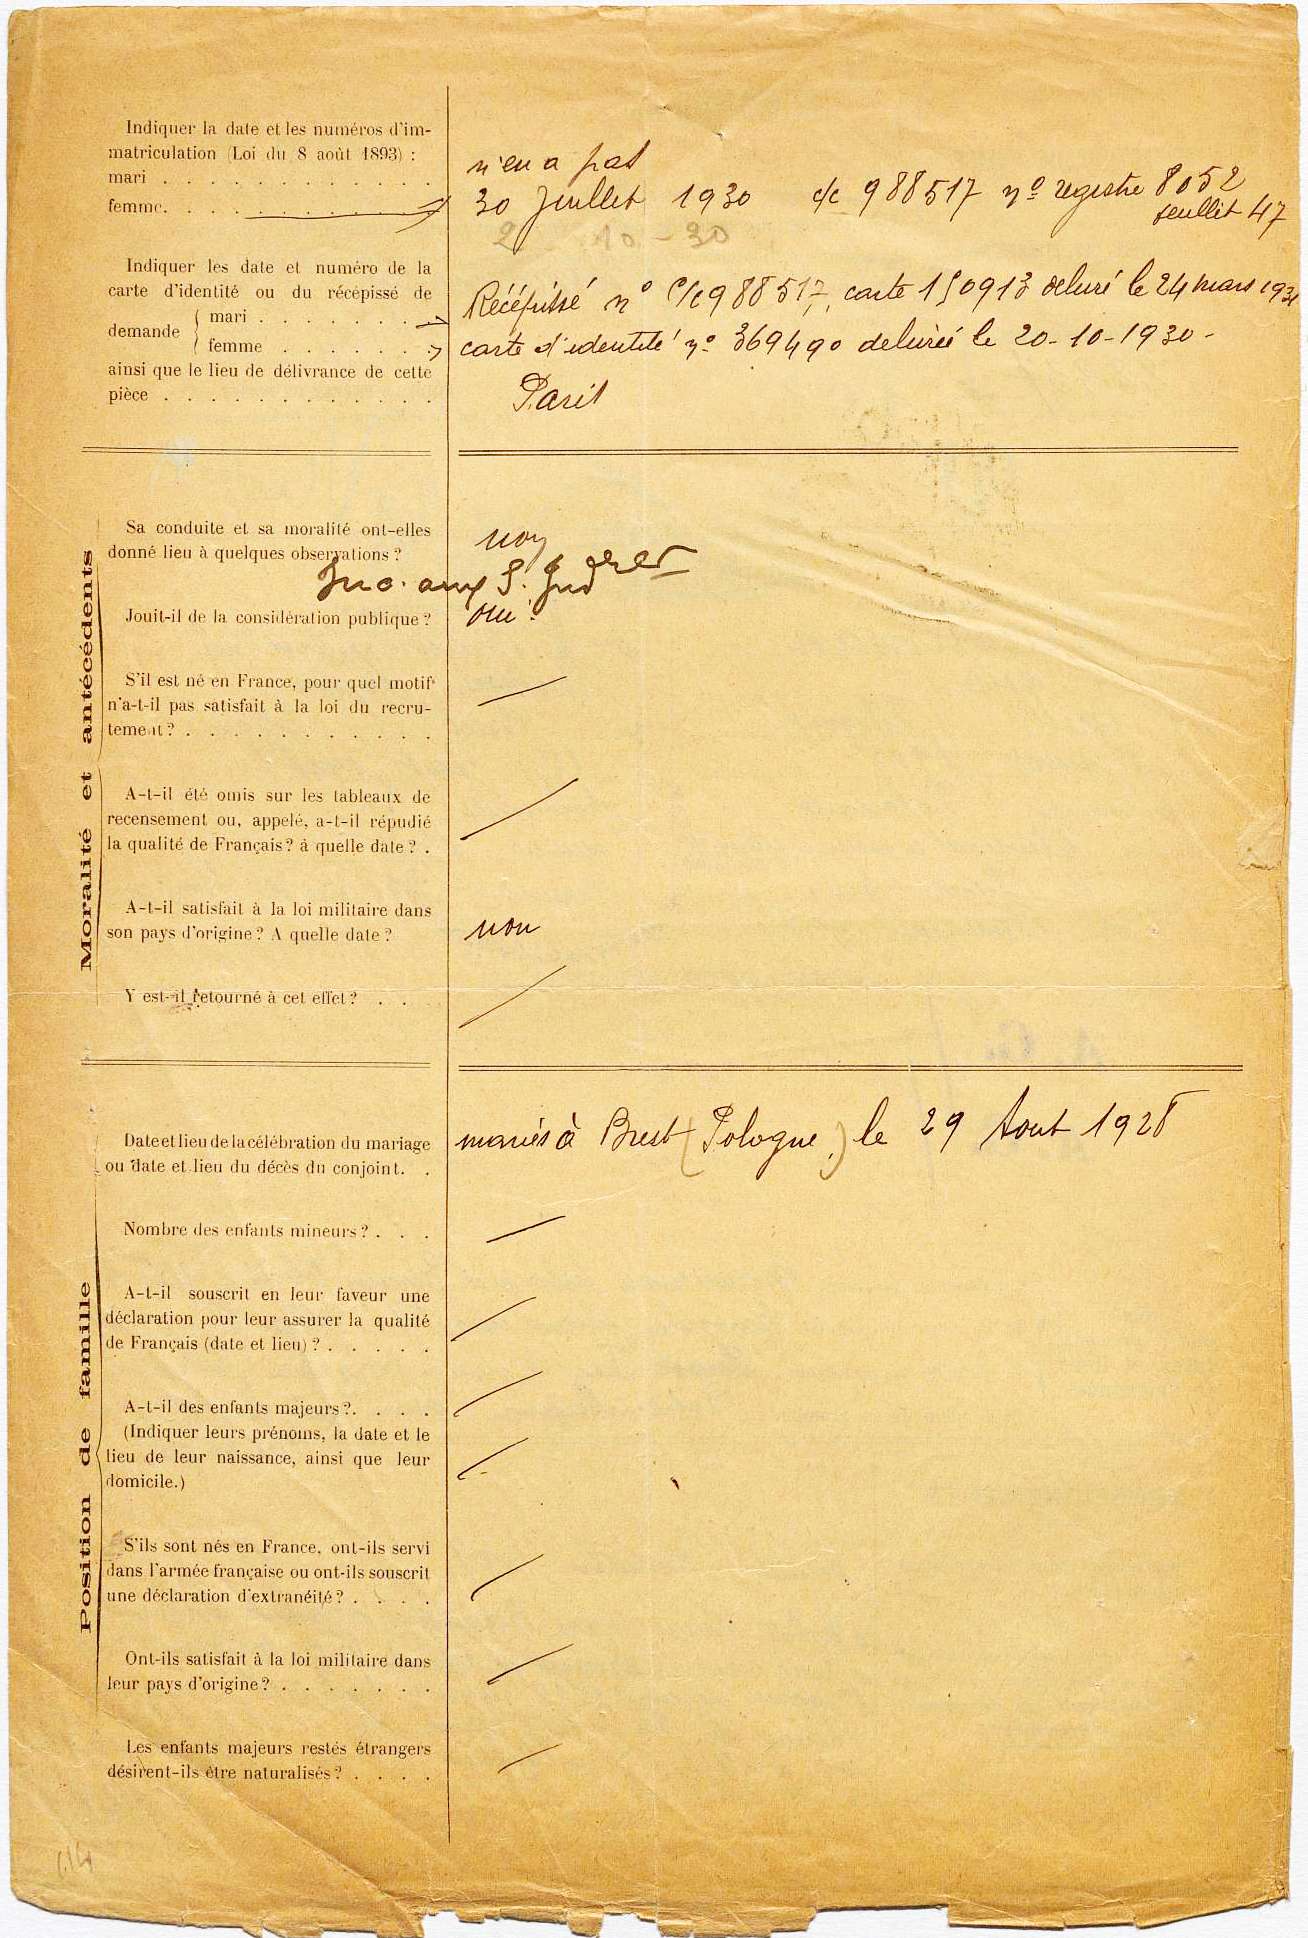 Indiquer la date et les numéros d'im-
matriculation (Loi du 8 août 1893) :
mari . . . . . . . . . . . . n'en a pas
femme. . . . . . . . . . . . 30 Juillet 1930 c/c 988517 nº registre 8052
feuillet 47
10 - 30
Indiquer les date et numéro de la
carte d'identité ou du récépissé de
demande { mari . . . . . . . . Récépissé nº c/c 988517, carte 150913 délivré le 24 mars 1931
femme . . . . . . . carte d'identité nº 369490 délivrée le 20-10-1930-
ainsi que le lieu de délivrance de cette
pièce . . . . . . . . . . . . Paris
Moralité et antécédents
Sa conduite et sa moralité ont-elles
donné lieu à quelques observations? non
Inc. aux S. Jud
Jouit-il de la considération publique? oui
S'il est né en France, pour quel motif
n'a-t-il pas satisfait à la loi du recru-
tement? . . . . . . . . . . . —
A-t-il été omis sur les tableaux de
recensement ou, appelé, a-t-il répudié
la qualité de Français? à quelle date? . /
A-t-il satisfait à la loi militaire dans
son pays d'origine? A quelle date? non
Y est-il retourné à cet effet? . . /
Position de famille
Date et lieu de la célébration du mariage mariés à Brest (Pologne) le 29 Aout 1928
ou date et lieu du décès du conjoint. .
Nombre des enfants mineurs? . . . —
A-t-il souscrit en leur faveur une
déclaration pour leur assurer la qualité
de Français (date et lieu)? . . . . . /
A-t-il des enfants majeurs?. . . . /
(Indiquer leurs prénoms, la date et le
lieu de leur naissance, ainsi que leur
domicile.) /
S'ils sont nés en France, ont-ils servi
dans l'armée française ou ont-ils souscrit
une déclaration d'extranéité? . . . . /
Ont-ils satisfait à la loi militaire dans
leur pays d'origine? . . . . . . . /
Les enfants majeurs restés étrangers
désirent-ils être naturalisés? . . . . /